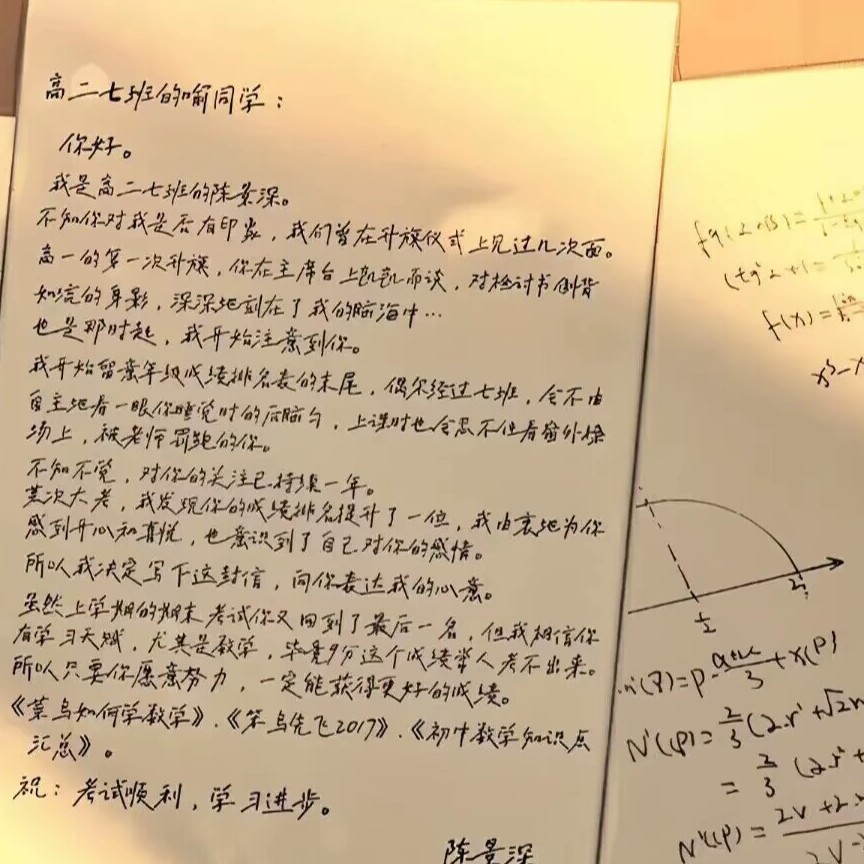 高二七班的喻同学：
你好。
我是高二七班的陈景深。
不知你对我是否有印象，我们曾在升旗仪式上见过几次面。
高一的第一次升旗，你在主席台上侃侃而谈，对检讨书倒背
如流的身影，深深地刻在了我的脑海中…
也是那时起，我开始注意到你。
我开始留意年级成绩排名表的末尾，偶尔经过七班，会不由
自主地看一眼你睡觉时的后脑勺，上课时也会忍不住看窗外操
场上，被老师罚跑的你。
不知不觉，对你的关注已持续一年。
某次大考，我发现你的成绩排名提升了一位，我由衷地为你
感到开心和喜悦，也意识到了自己对你的感情。
所以我决定写下这封信，向你表达我的心意。
虽然上学期的期末考试你又回到了最后一名，但我相信你
有学习天赋，尤其是数学，毕竟9分这个成绩常人考不出来。
所以只要你愿意努力，一定能获得更好的成绩。
《菜鸟如何学数学》、《笨鸟先飞2017》、《初中数学知识点
汇总》。
祝：考试顺利，学习进步。
陈景深
f(x)=
x³-x
1/2
2
N'(P)=2/3(2r²+√2r
=2/3(2r²+
N'(P)=